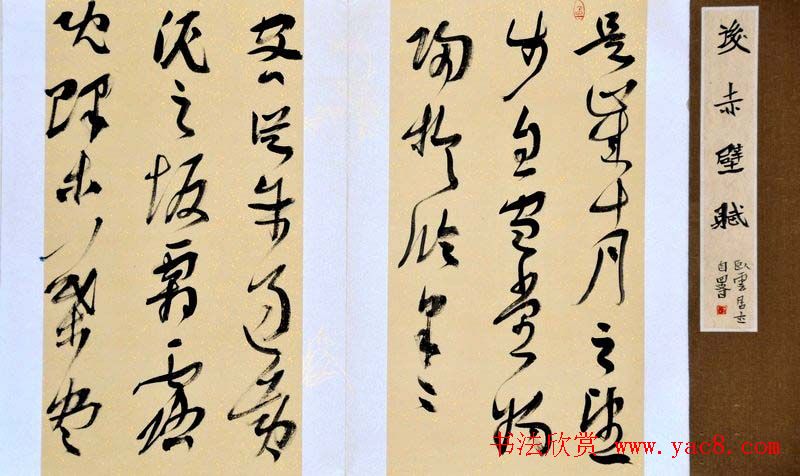 後赤壁賦
臥雲居士
自署
是歲十月之望
步自雪堂將
歸於臨皋二
客從予過黃
泥之坂霜露
既降木葉盡
书法欣赏 www.yac8.com